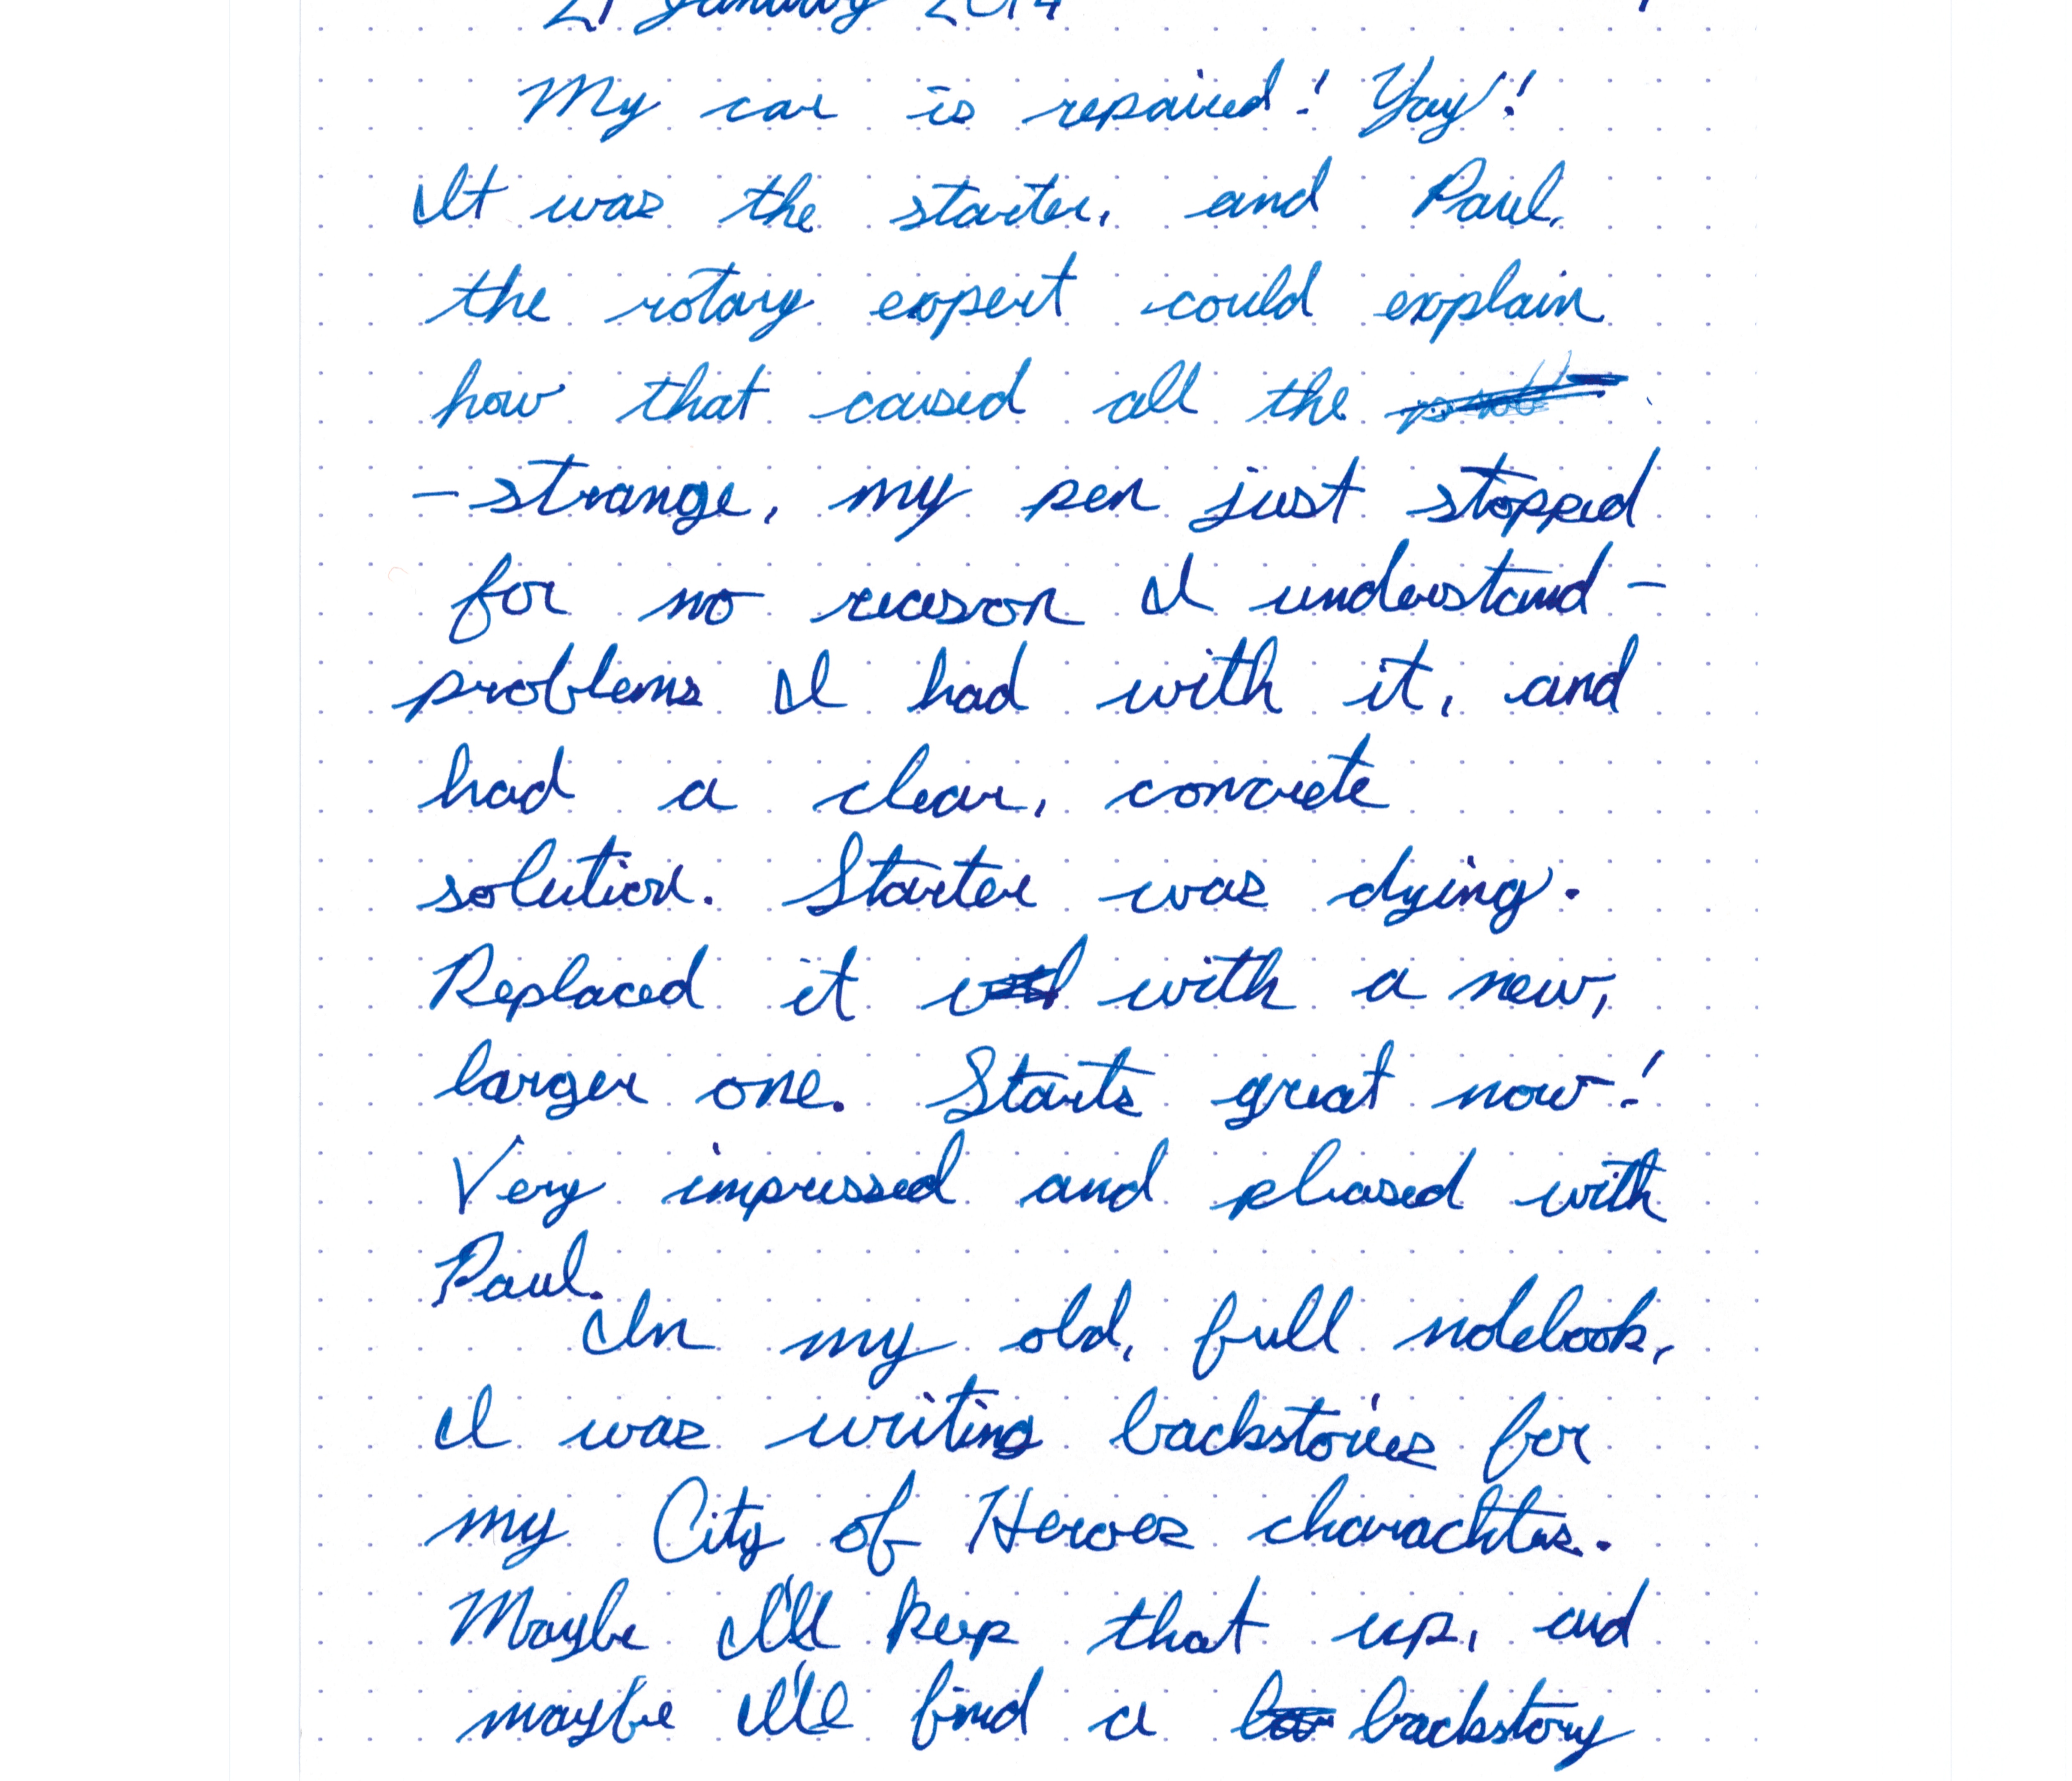 21 January 2014
My car is repaired! Yay!
It was the starter, and Paul,
the rotary expert could explain
how that caused all the
-strange, my pen just stopped
for no reason I understand-
problems I had with it, and
had a clear, concrete
solution. Starter was dying.
Replaced it with a new,
larger one. Starts great now!
Very impressed and pleased with
Paul.
In my old, full notebook,
I was writing backstories for
my City of Heroes charachters.
Maybe I'll keep that up, and
maybe I'll find a backstory